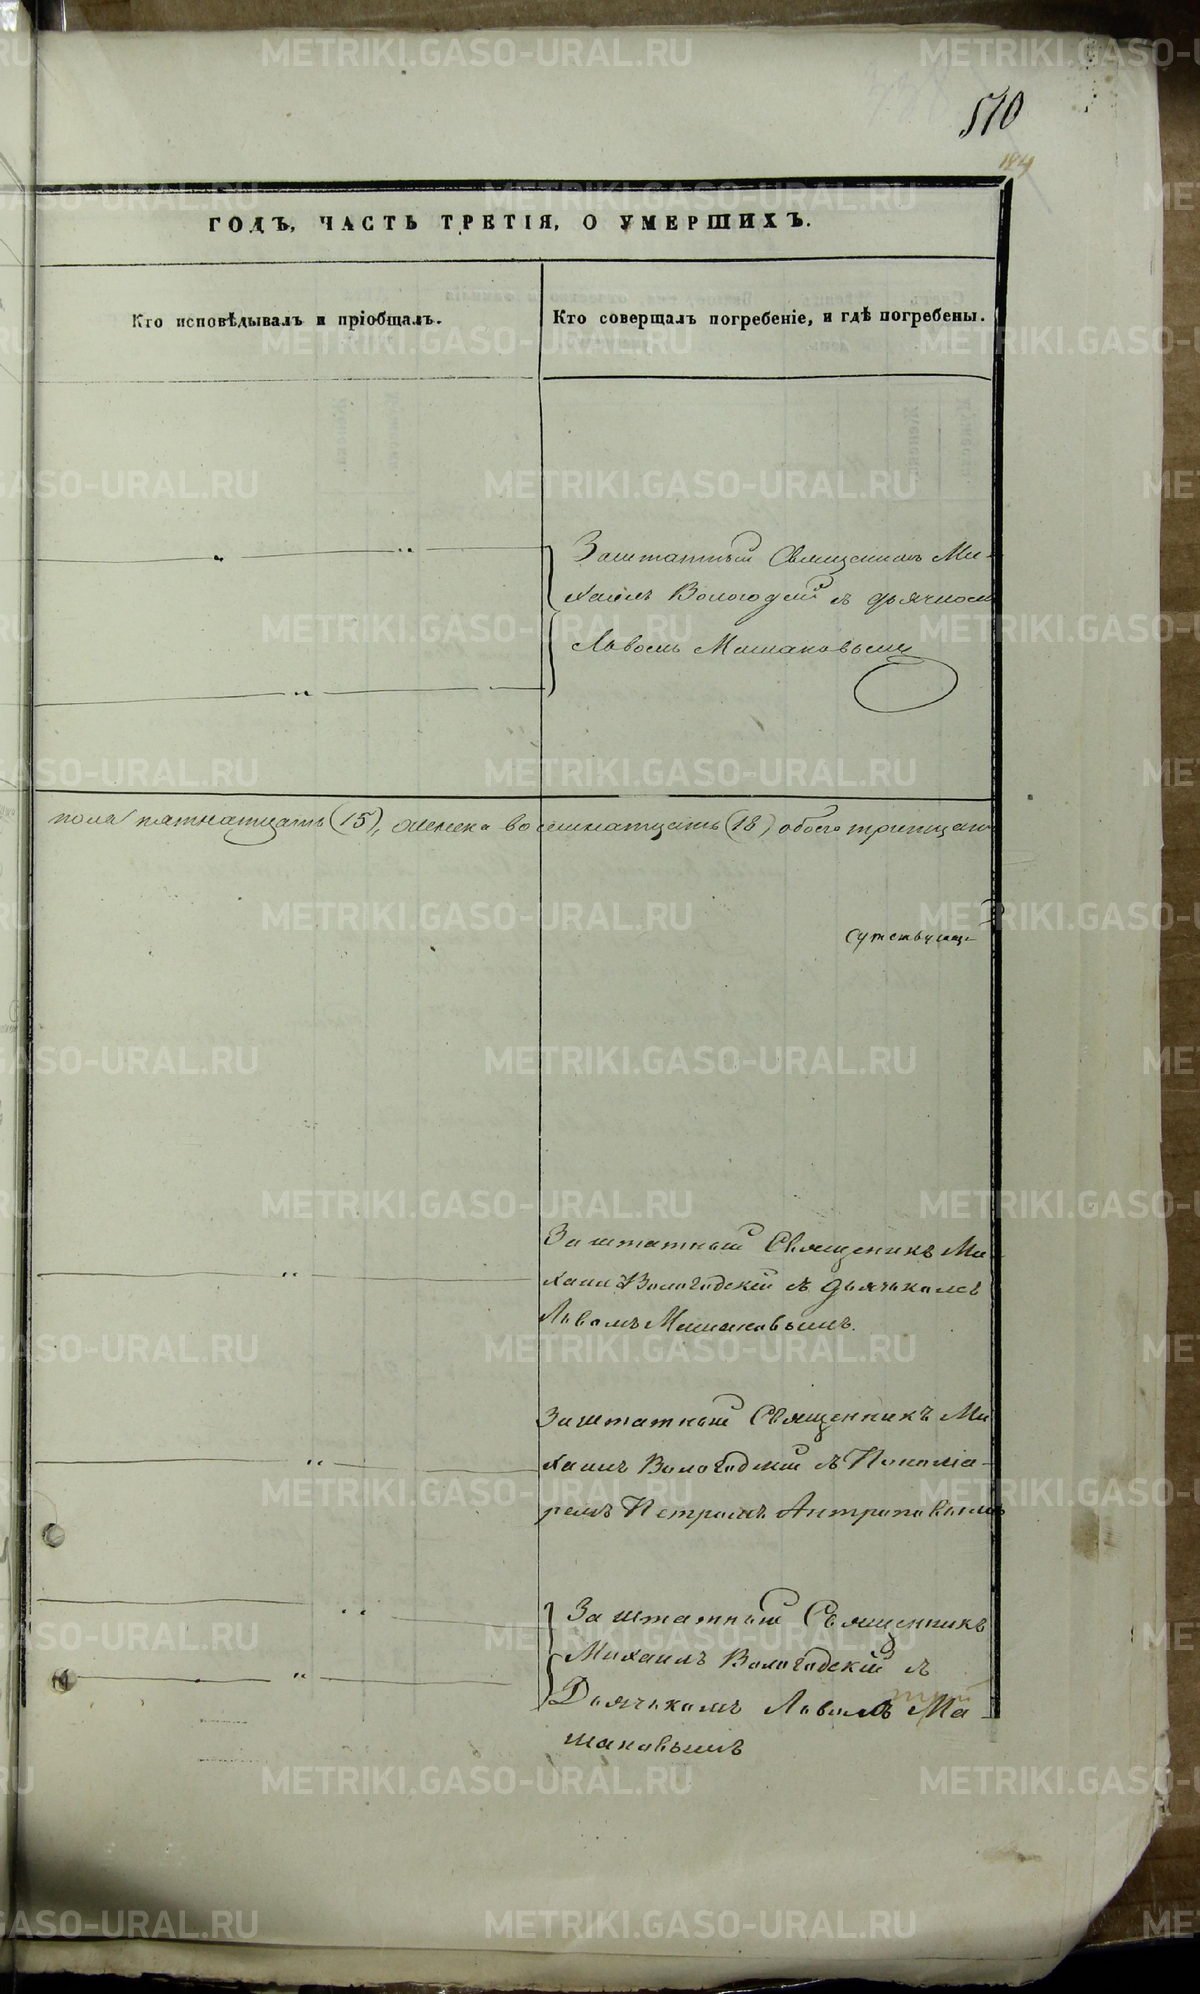 510
184
ГОДЪ, ЧАСТЬ ТРЕТІЯ, О УМЕРШИХЪ.
Кто исповѣдывалъ и пріобщалъ.
Кто совершалъ погребеніе, и гдѣ погребены.
Заштатный Священникъ Ми-
хаилъ Вологодскій съ дьячкомъ
Львомъ Машановымъ
пола пятнатцать (15), женска восемнатцать (18) обоего тритцать
Заштатный Священикъ Ми-
хаилъ Вологодскій съ дьячькомъ
Львомъ Машановымъ.
Заштатный Священникъ Ми
хаилъ Вологодскій съ Понома-
ремъ Петромъ Антроповымъ
Заштатный Священникъ
Михаилъ Вологодскій съ
Дьячькомъ Львомъ Ма-
шановымъ
METRIKI.GASO-URAL.RU